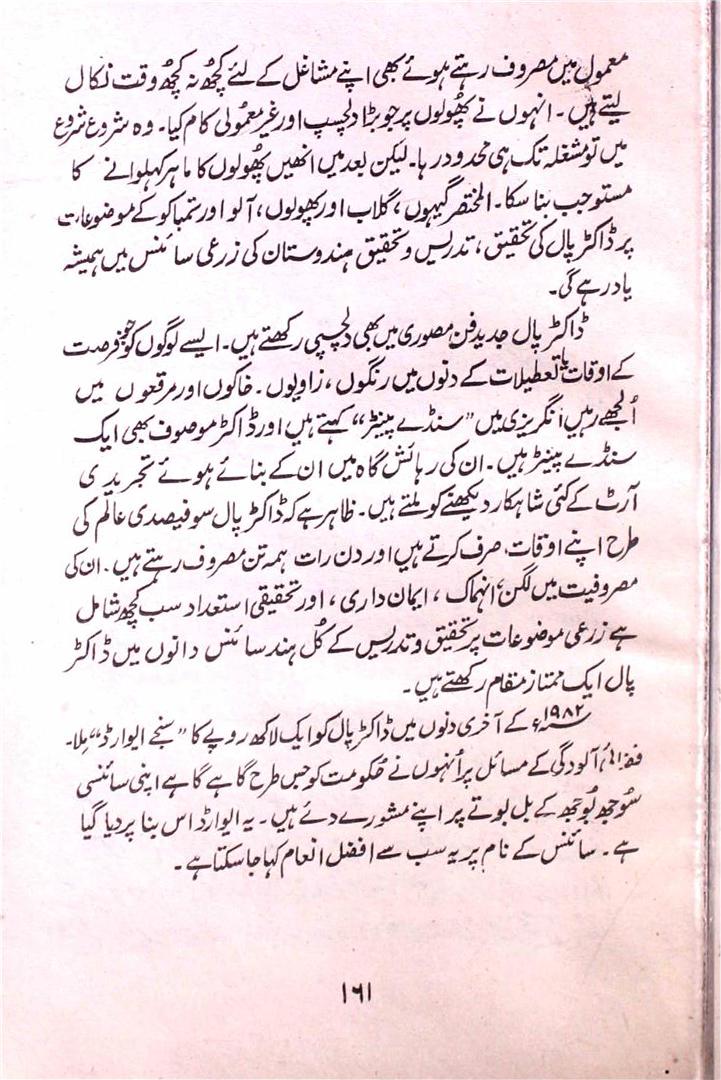 معمول میں مصروف رہتے ہوئے بھی اپنے مشاغل کے لئے کچھ نہ کچھ وقت نکال
لیتے ہیں۔ انہوں نے پھُولوں پر جو بڑا دلچسپ اور غیر معمولی کام کیا۔ وہ شروع شروع
میں تو مشغلہ تک ہی محدود رہا۔ لیکن بعد میں انھیں پھُولوں کا ماہر کہلوانے کا
مستوجب بنا سکا۔ المختصر گیہوں، گلاب اور پھولوں، آلو اور تمباکو کے موضوعات
پر ڈاکٹر پال کی تحقیق، تدریس و تحقیق ہندوستان کی زرعی سائنس میں ہمیشہ
یاد رہے گی۔
ڈاکٹر پال جدید فنِ مصوری میں بھی دلچسپی رکھتے ہیں۔ ایسے لوگوں کو جو فرصت
کے اوقات یا تعطیلات کے دنوں میں رنگوں، زاویوں۔ خاکوں اور مرقعوں میں
اُلجھے رہیں انگریزی میں "سنڈے پینٹر" کہتے ہیں اور ڈاکٹر موصوف بھی ایک
سنڈے پینٹر ہیں۔ ان کی رہائش گاہ میں ان کے بنائے ہوئے تجریدی
آرٹ کے کئی شاہکار دیکھنے کو ملتے ہیں۔ ظاہر ہے کہ ڈاکٹر پال سو فیصدی عالم کی
طرح اپنے اوقات صرف کرتے ہیں اور دن رات ہمہ تن مصروف رہتے ہیں۔ ان کی
مصروفیت میں لگن، انہماک، ایمان داری، اور تحقیقی استعداد سب کچھ شامل
ہے زرعی موضوعات پر تحقیق و تدریس کے کُل ہند سائنس دانوں میں ڈاکٹر
پال ایک ممتاز مقام رکھتے ہیں۔
۱۹۸۲ء کے آخری دنوں میں ڈاکٹر پال کو ایک لاکھ روپے کا "سنجے ایوارڈ" ملا۔
فضائی آلودگی کے مسائل پر اُنہوں نے حکومت کو جس طرح گاہے گاہے اپنی سائنسی
سُوجھ بُوجھ کے بل بوتے پر اپنے مشورے دئے ہیں۔ یہ ایوارڈ اس بنا پر دیا گیا
ہے۔ سائنس کے نام پر یہ سب سے افضل انعام کہا جا سکتا ہے۔
۱۶۱